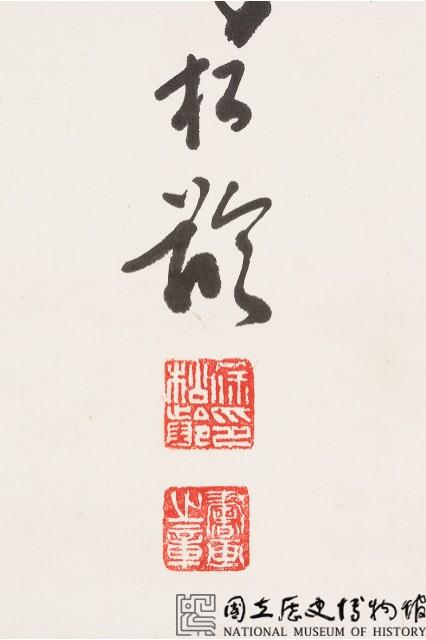 松
齡
書畫
之章
國立歷史博物館
NATIONAL MUSEUM OF HISTORY